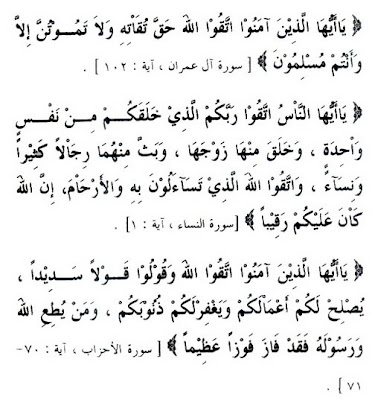 ﴿ يَاأَيُّهَا الَّذِيْنَ آمَنُوْا اتَّقُوْا اللهَ حَقَّ تُقَاتِهِ وَلاَ تَمُوْتُنَّ إِلاَّ
وَأَنْتُمْ مُسْلِمُوْنَ ﴾ [ سورة آل عمران ، آية : ١٠٢ ] .
﴿ يَاأَيُّهَا النَّاسُ اتَّقُوْا رَبَّكُمْ الَّذِيْ خَلَقَكُمْ مِنْ نَفْسٍ
وَاْحِدَةٍ ، وَخَلَقَ مِنْهَا زَوْجَهَا ، وَبَثَّ مِنْهُمَا رِجَالاً كَثِيْراً
وَنِسَاءً ، وَاتَّقُوْا اللهَ الَّذِيْ تَسَاءَلُوْنَ بِهِ وَالأَرْحَاْمَ، إِنَّ اللهَ
كَاْنَ عَلَيْكُمْ رَقِيْباً ﴾ [سورة النساء ، آية : ١] .
﴿ يَاأَيُّهَا الَّذِيْنَ آمَنُوْا اتَّقُوْا اللهَ وَقُوْلُوْا قَوْلاً سَدِيْداً ،
يُصْلِحْ لَكُمْ أَعْمَالَكُمْ وَيَغْفِرْلَكُمْ ذُنُوْبَكُمْ ، وَمَنْ يُطِعِ اللهَ
وَرَسُوْلَهُ فَقَدْ فَازَ فَوْزاً عَظِيْماً ﴾ [ سورة الأحزاب ، آية : ٧٠-
٧١ ] .